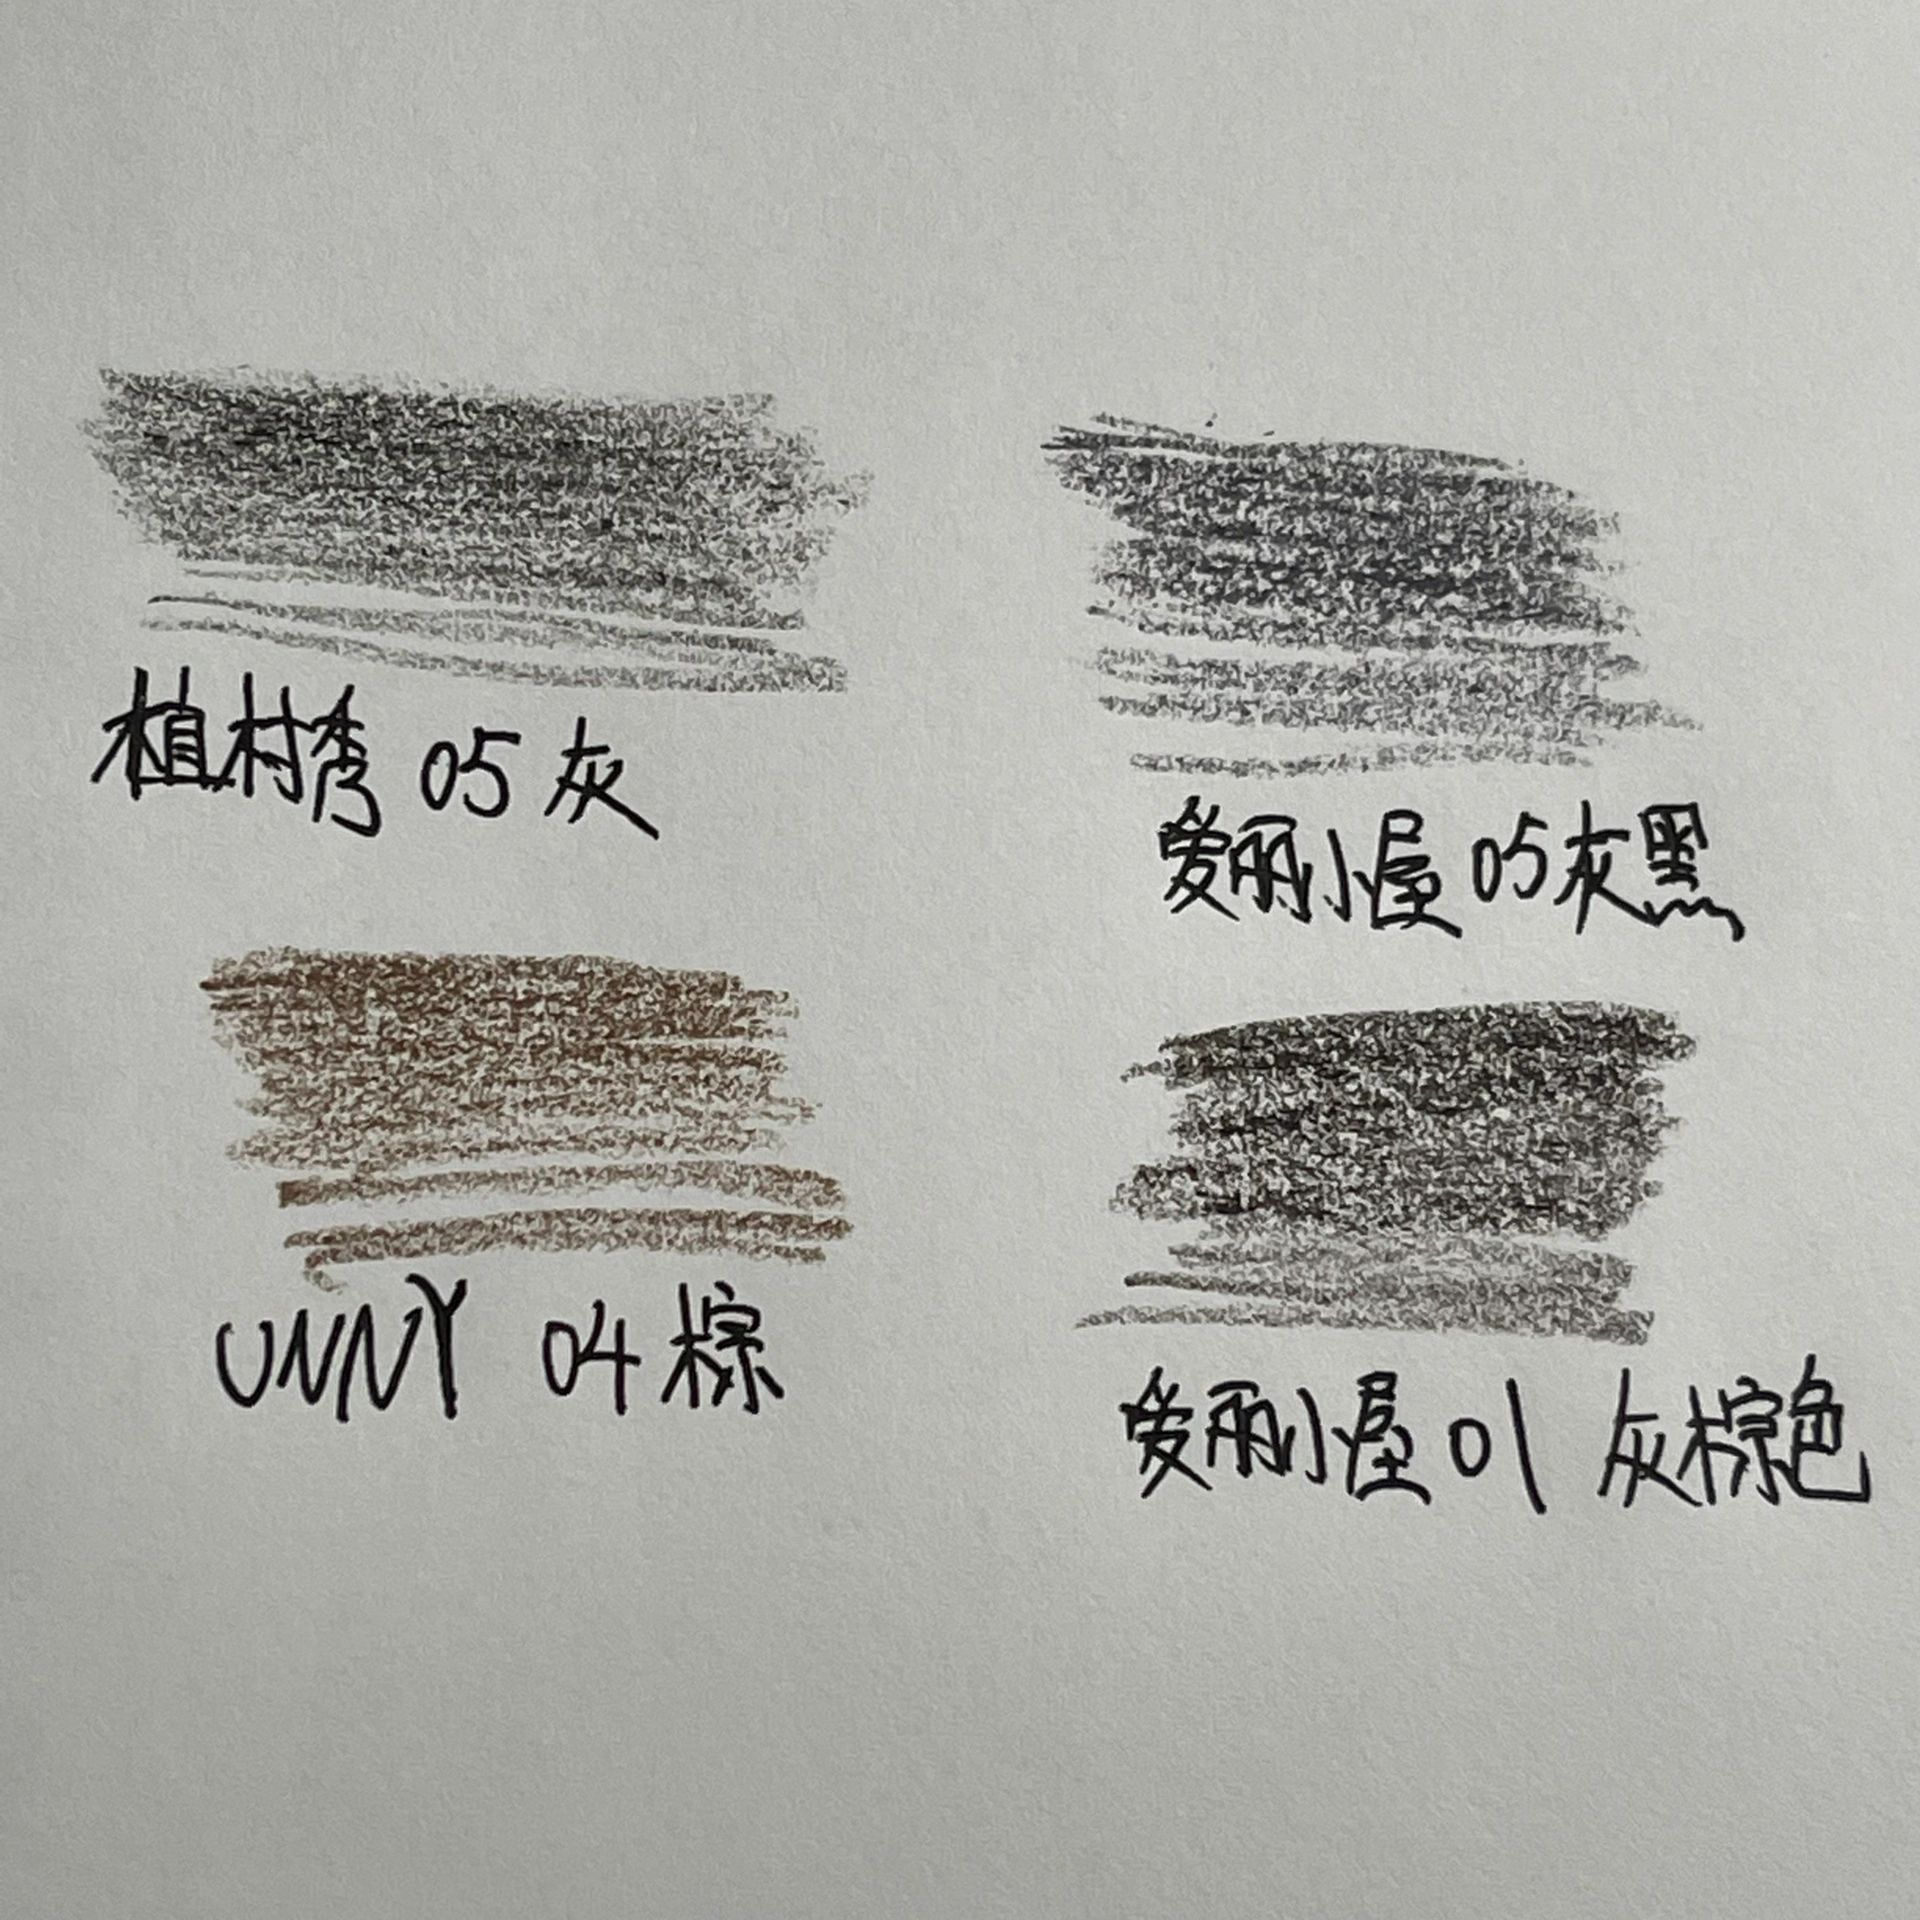 植村秀 05 灰
爱丽小屋 05 灰黑
UNNY 04 棕
爱丽小屋 01 灰棕色